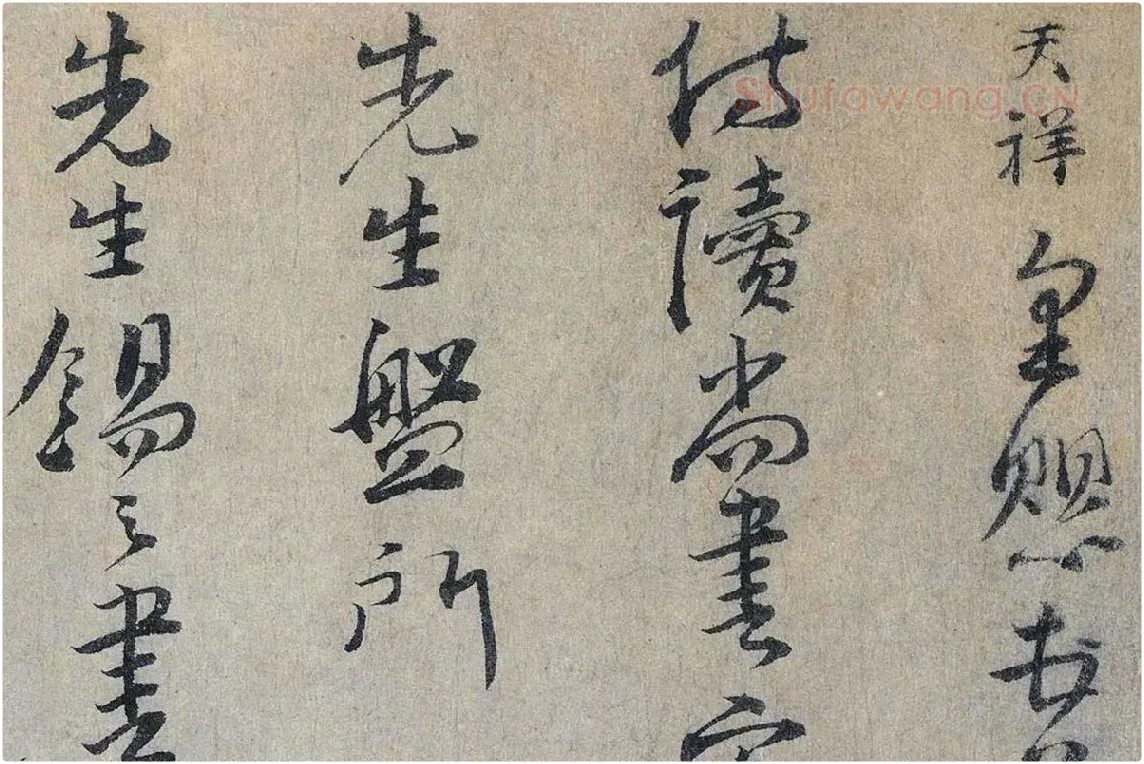 天祥皇
侍讀尚書
先生盤所
先生錫之書
Shufawang.CN